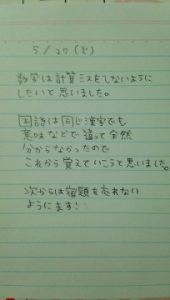 5/27(で)
数学は計算ミスをしないように
したいと思いました。
国語は同じ漢字でも
意味などで違って全然
分からなかったので
これから覚えていこうと思いました。
次からは宿題を忘れない
ようにします!